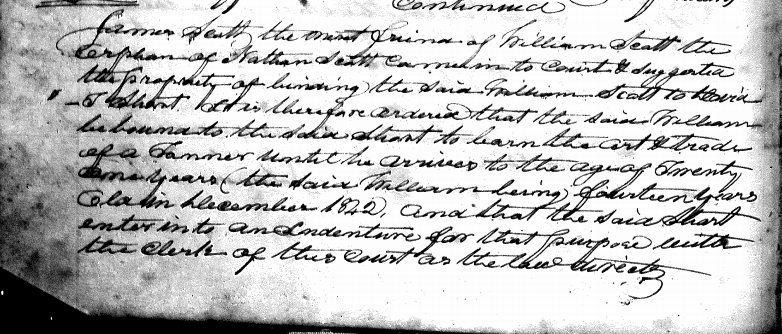 Continued
James Scott the next friend of William Scott the
orphan of Nathan Scott came into Court & suggested
the propriety of binding the said William Scott to David
T Short. It is therefore ordered that the said William
be bound to the said Short to learn the art & trade
of a Tanner until he arrives to the age of Twenty
one years (the said William being fourteen years
old in December 1842), and that the said Short
enter into an Indenture for that purpose with
the Clerk of this Court as the law directs